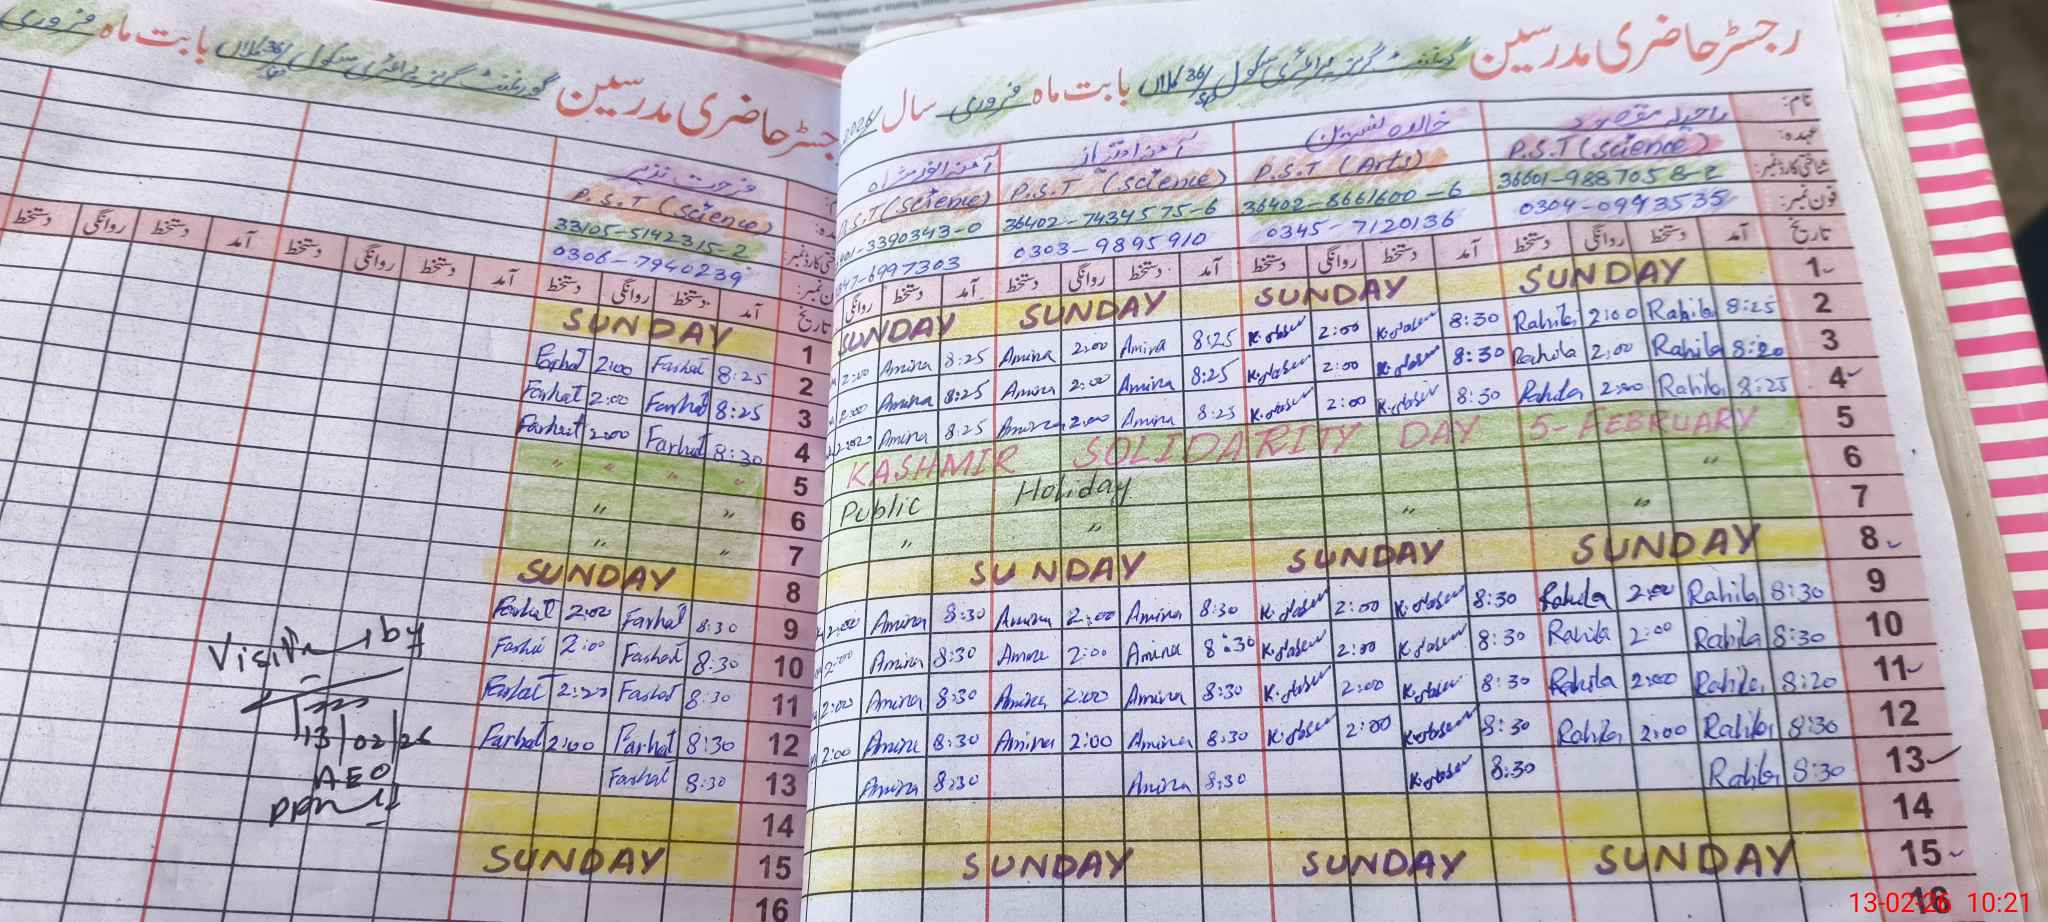 رجسٹر حاضری مدرسین گورنمنٹ گرلز پرائمری سکول 36/SP کلاں بابت ماہ فروری سال 2026
نام: راحیلہ مقصود خالدہ نسرین آمنہ امتیاز
عہدہ: P.S.T (Science) P.S.T (Arts) P.S.T (Science) P.S.T (Science)
شناختی کارڈ نمبر: 36402-8661600-6 36402-7434575-6
فون نمبر: 0304-0943535 0345-7120136 0303-9895910
تاریخ آمد دستخط روانگی دستخط آمد دستخط روانگی دستخط آمد دستخط روانگی دستخط آمد دستخط روانگی
1 SUNDAY SUNDAY SUNDAY SUNDAY
2:00 Amina 8:25 Amina 2:00 Amina 8:25 2:00 8:30 Rahila 2:00 Rahila 8:25 2
2:00 Amina 8:25 Amina 2:00 Amina 8:25 2:00 8:30 Rahila 2:00 Rahila 8:20 3
2:00 Amina 8:25 Amina 2:00 Amina 8:25 2:00 8:30 Rahila 2:00 Rahila 8:25 4
KASHMIR SOLIDARITY DAY 5-FEBRUARY 5
Public Holiday " 6
" " " " 7
SUNDAY SUNDAY SUNDAY 8
2:00 Amina 8:30 Amina 2:00 Amina 8:30 2:00 8:30 Rahila 2:00 Rahila 8:30 9
2:00 Amina 8:30 Amina 2:00 Amina 8:30 2:00 8:30 Rahila 2:00 Rahila 8:30 10
2:00 Amina 8:30 Amina 2:00 Amina 8:30 2:00 8:30 Rahila 2:00 Rahila 8:20 11
2:00 Amina 8:30 Amina 2:00 Amina 8:30 2:00 8:30 Rahila 2:00 Rahila 8:30 12
Amina 8:30 Amina 8:30 8:30 Rahila 8:30 13
14
SUNDAY SUNDAY SUNDAY 15
16
حاضری مدرسین گورنمنٹ گرلز پرائمری سکول 36/SP کلاں بابت ماہ فروری
فرحت نذیر
P.S.T (Science)
33105-5142315-2
0306-7940239
تاریخ آمد دستخط روانگی دستخط آمد دستخط روانگی دستخط آمد دستخط روانگی دستخط
SUNDAY 1
Farhat 2:00 Farhat 8:25 2
Farhat 2:00 Farhat 8:25 3
Farhat 2:00 Farhat 8:30 4
" " " " 5
" " 6
" " 7
SUNDAY 8
Farhat 2:00 Farhat 8:30 9
Farhat 2:00 Farhat 8:30 10
Farhat 2:20 Farhat 8:30 11
Farhat 2:00 Farhat 8:30 12
Farhat 8:30 13
14
SUNDAY 15
16
by
13/02/26
AEO
13-02-26 10:21